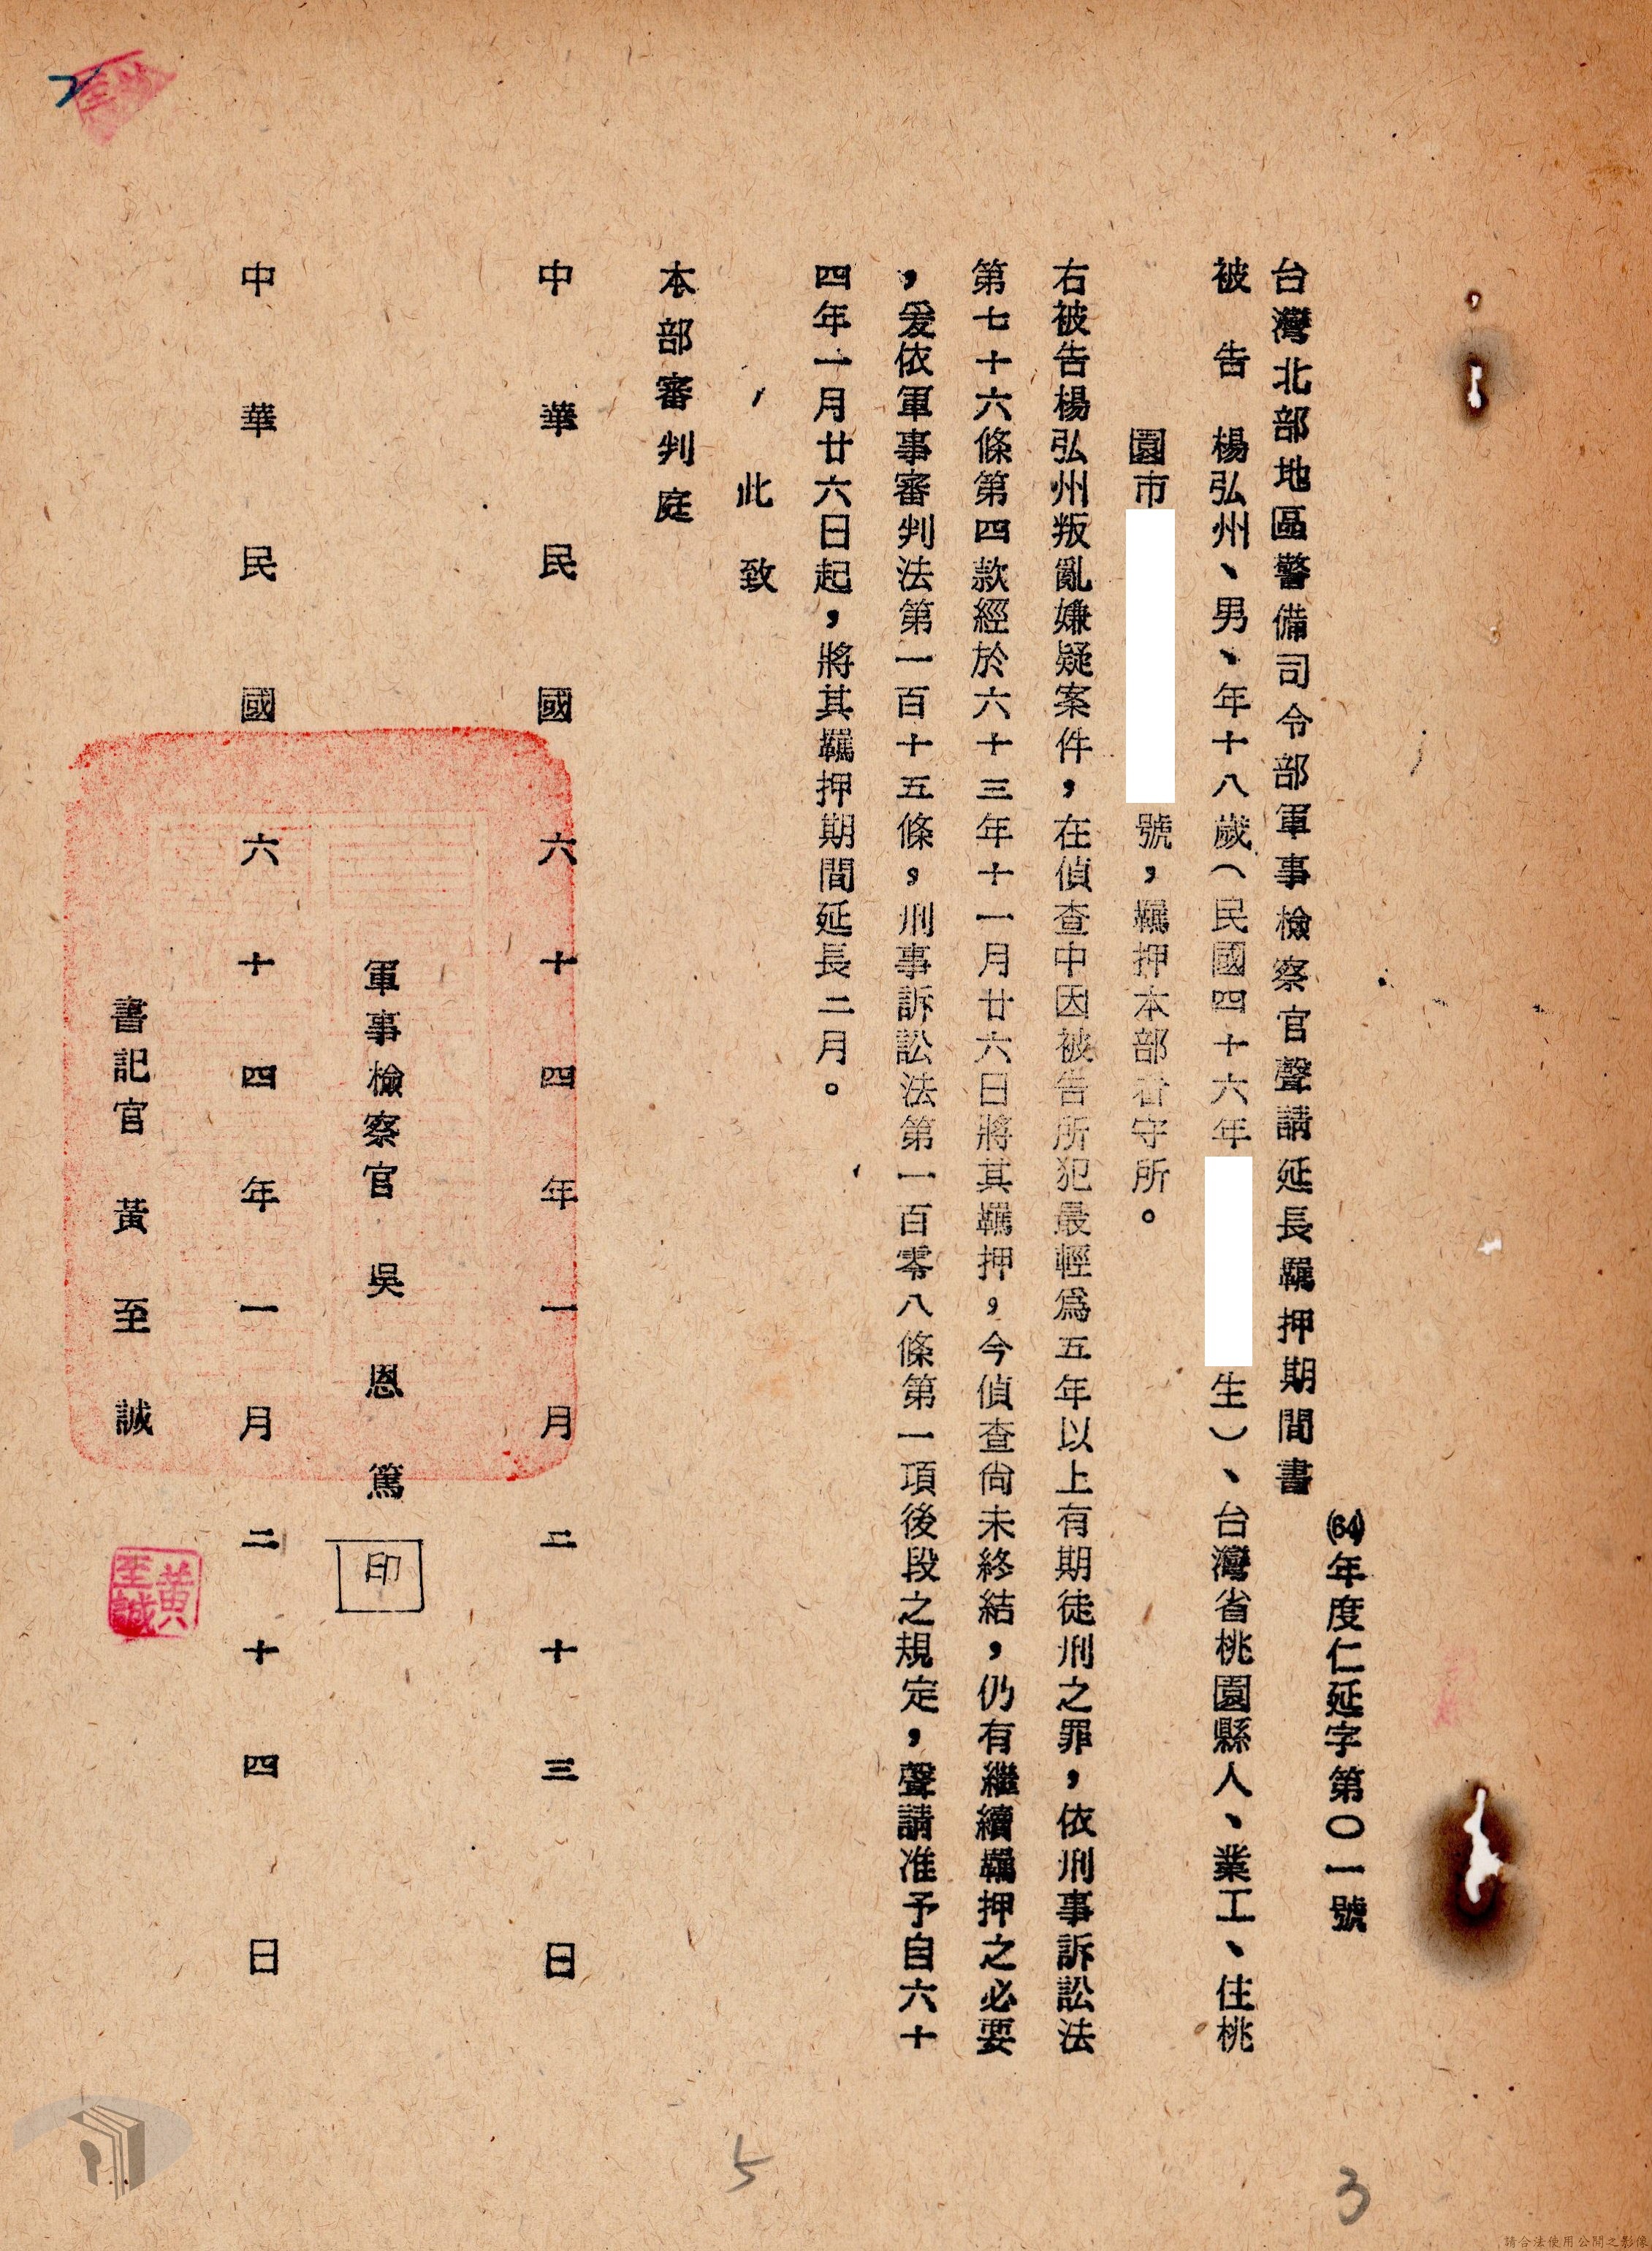 (64)年度仁延字第〇一號
台灣北部地區警備司令部軍事檢察官聲請延長羈押期間書
被告 楊弘州、男、年十八歲（民國四十六年
生）、台灣省桃園縣人、業工、住桃
園市
號，羈押本部看守所。
右被告楊弘州叛亂嫌疑案件，在偵查中因被告所犯最輕爲五年以上有期徒刑之罪，依刑事訴訟法
第七十六條第四款經於六十三年十一月廿六日將其羈押，今偵查尚未終結，仍有繼續羈押之必要
，爰依軍事審判法第一百十五條，刑事訴訟法第一百零八條第一項後段之規定，聲請准予自六十
四年一月廿六日起，將其羈押期間延長二月。
此致
本部審判庭
中華民國六十四年一月二十三日
軍事檢察官 吳恩篤
印
中華民國六十四年一月二十四日
書記官 黃至誠
黃至誠
5
3
請合法使用公開之影像